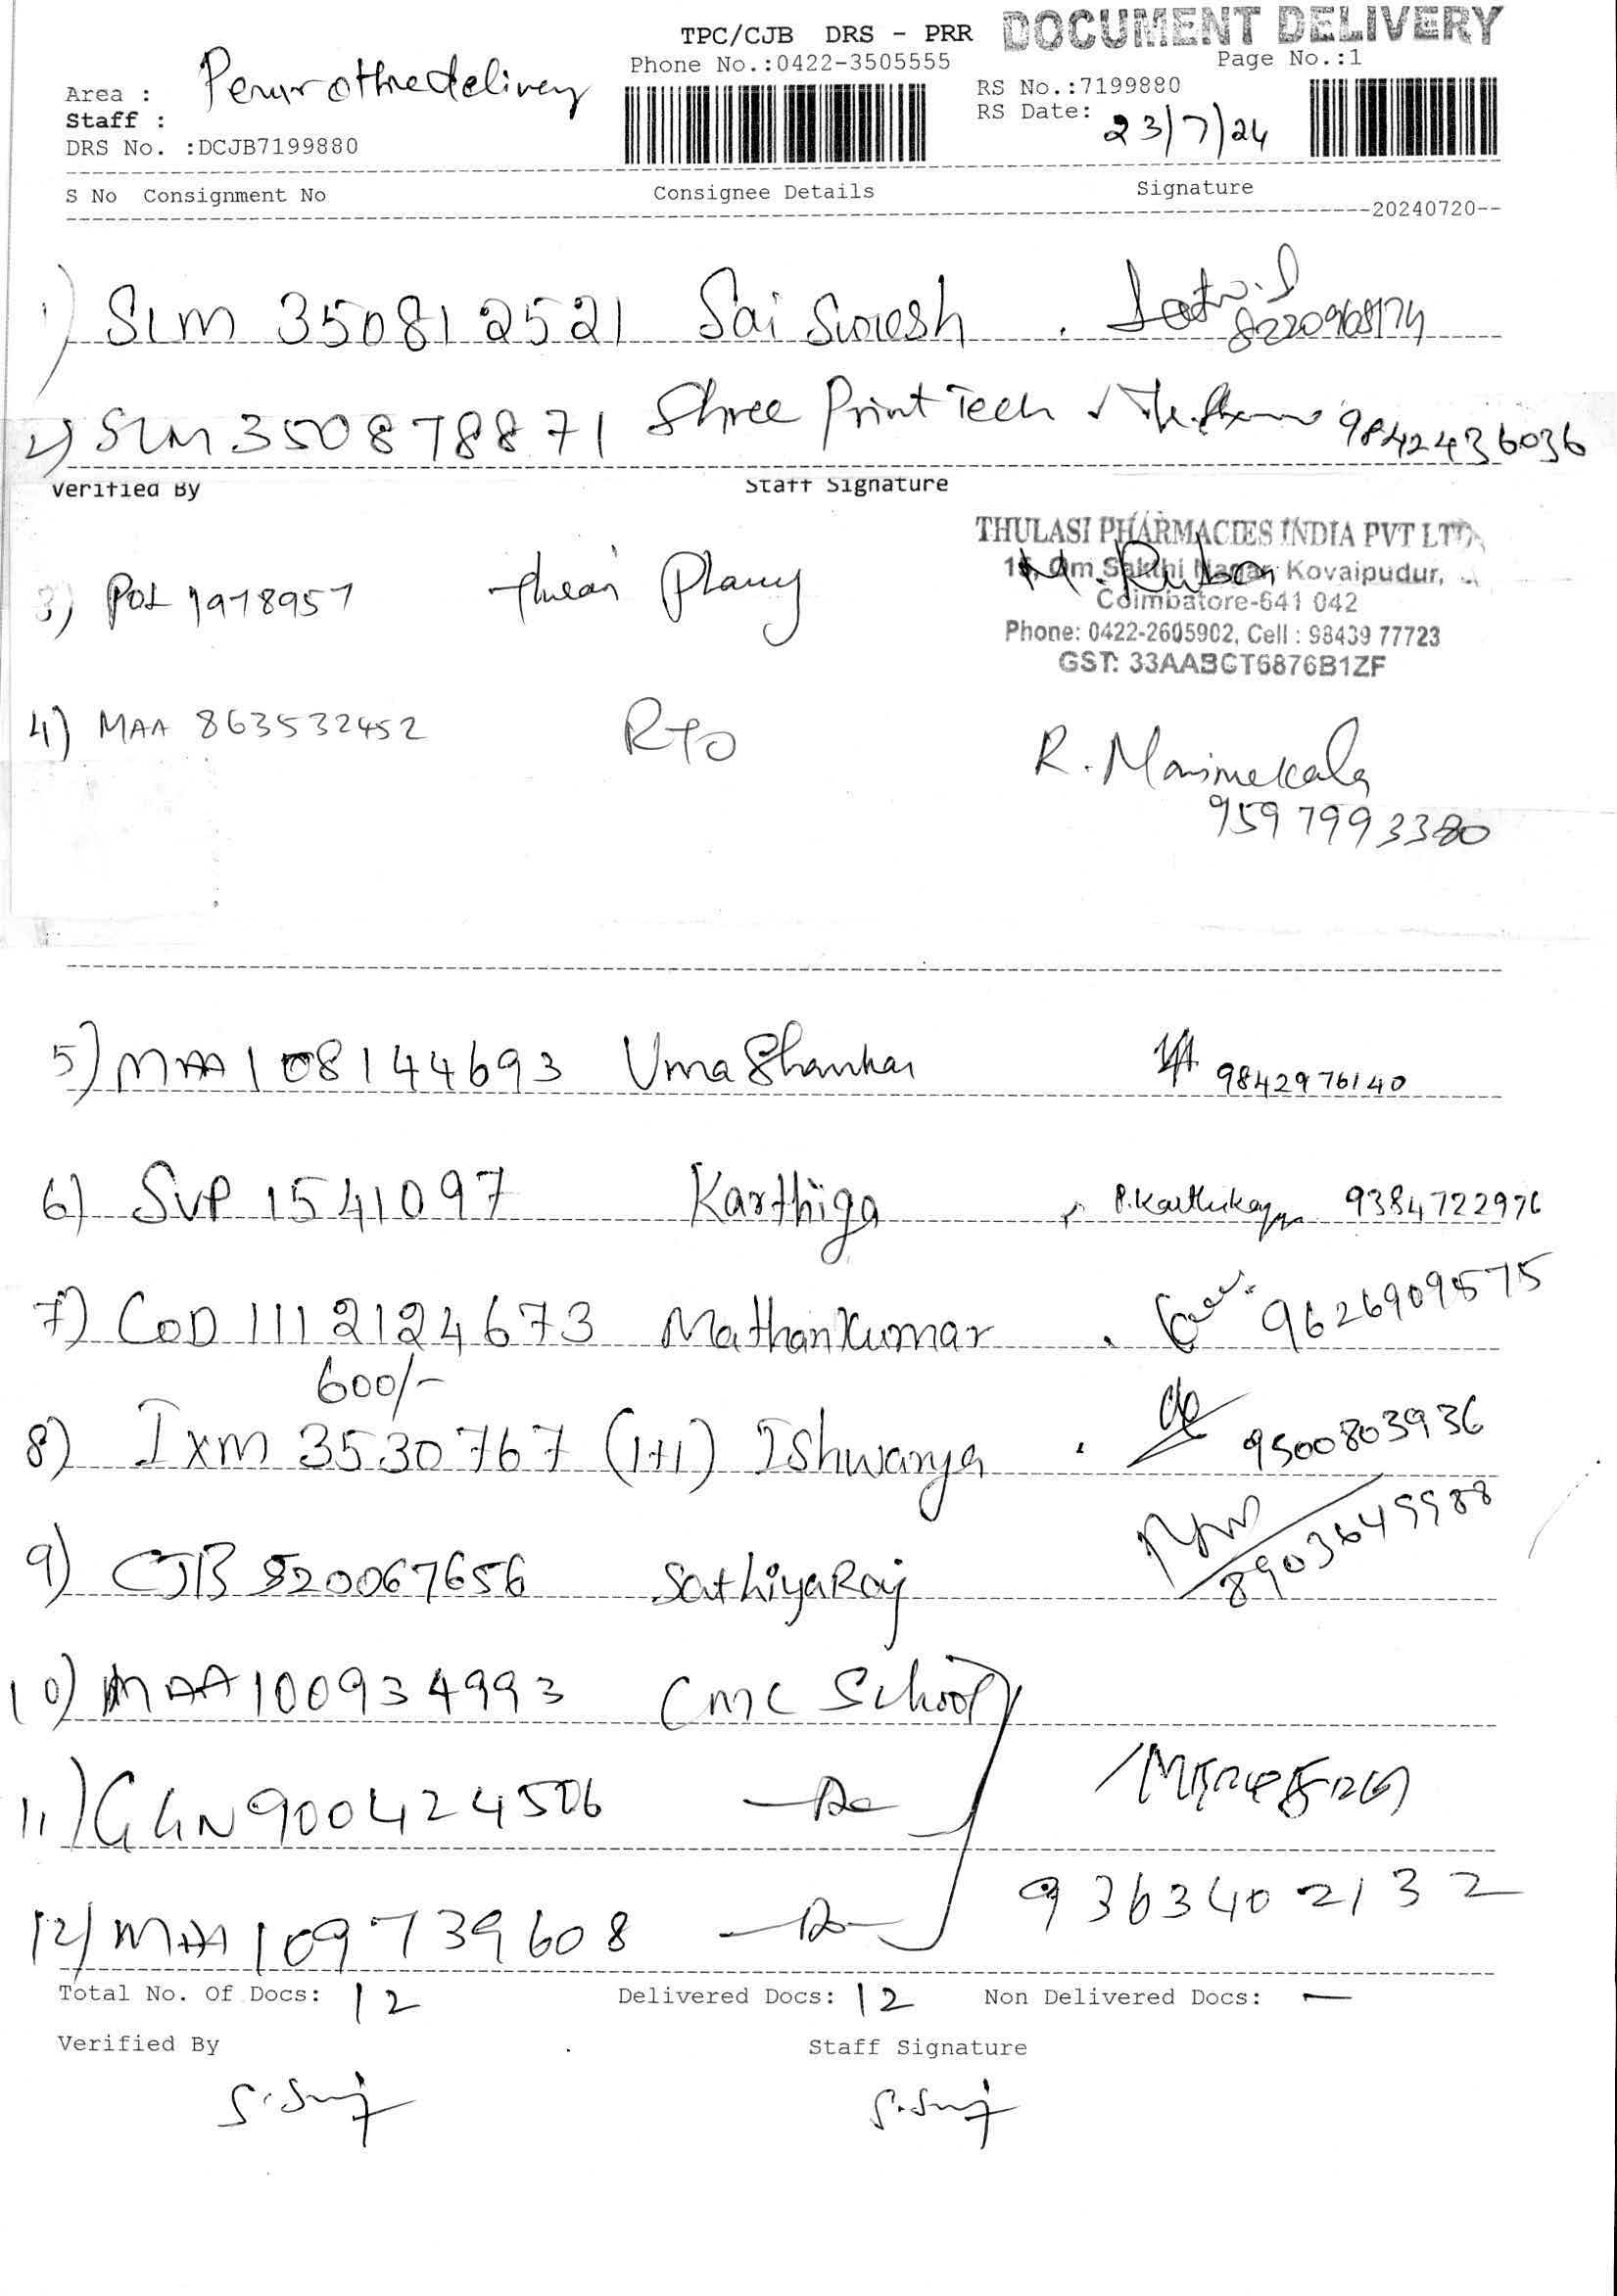 TPC/CJB DRS - PRR DOCUMENT DELIVERY
Phone No.:0422-3505555 Page No.:1
Area : Perur othre delivery RS No.:7199880
Staff : RS Date: 23/7/24
DRS No. :DCJB7199880
S No Consignment No Consignee Details Signature
20240720--
1) SLM 350812521 Sai Suresh
2) SLM 350878871 Shree Print Tech 9842436036
Verified By Staff Signature
THULASI PHARMACIES INDIA PVT LTD
15, Om Sakthi Nagar, Kovaipudur,
Coimbatore-641 042
Phone: 0422-2605902, Cell : 98439 77723
GST: 33AABCT6876B1ZF
M. Ruban
3) POL 1978957
4) MAA 863532452 RTO R. Manimekala
9597993380
5) MAA 108144693 Uma Shankar 9842976140
6) SVP 1541097 Karthiga P.Karthikayn 9384722976
7) COD 1112124673 Mathankumar 9626909575
600/-
8) IXM 3530767 (1+1) Ishwarya 9500803936
9) CJB 520067656 SathiyaRaj 8903649988
10) MAA 100934993 CMC School
11) GGN 900424506 -Do-
12) MAA 109739608 -Do- 9363402132
Total No. Of Docs: 12 Delivered Docs: 12 Non Delivered Docs: —
Verified By Staff Signature